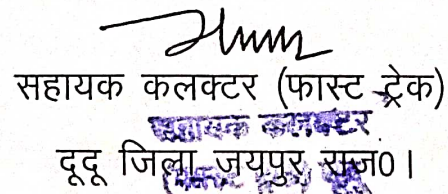 सहायक कलक्टर (फास्ट ट्रेक)
सहायक कलक्टर
दूदू जिला जयपुर राज0।